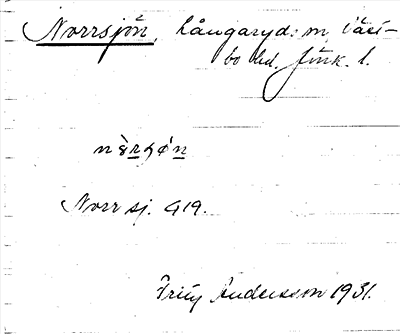 Norrsjön, Långaryd: sn, Västbo hd. Jönk. l.
Norrsj. G19.
Fritz Andersson 1931.